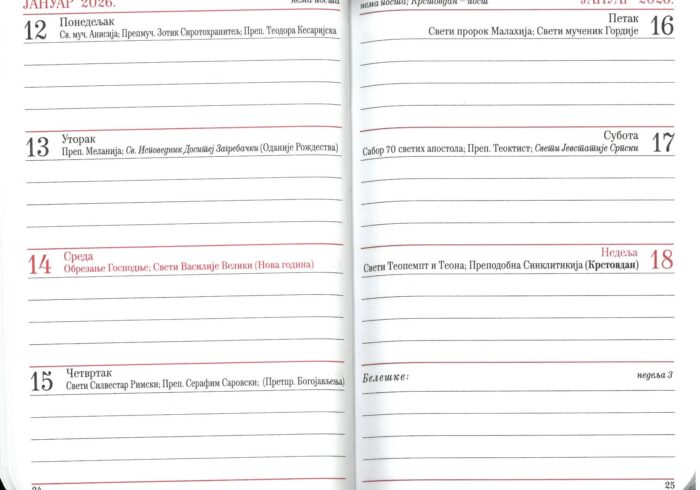 ЈАНУАР 2026.
нема поста
12 Понедељак
Св. муч. Анисија; Препмуч. Зотик Сиротохранитељ; Преп. Теодора Кесаријска
13 Уторак
Преп. Меланија; Св. Исповедник Доситеј Загребачки (Оданије Рождества)
14 Среда
Обрезање Господње; Свети Василије Велики (Нова година)
15 Четвртак
Свети Силвестар Римски; Преп. Серафим Саровски; (Претпр. Богојављења)
24
нема поста; Крстовдан – пост
ЈАНУАР 2026.
Петак 16
Свети пророк Малахија; Свети мученик Гордије
Субота 17
Сабор 70 светих апостола; Преп. Теоктист; Свети Јевстатије Српски
Недеља 18
Свети Теопемпт и Теона; Преподобна Синклитикија (Крстовдан)
Белешке:
недеља 3
25